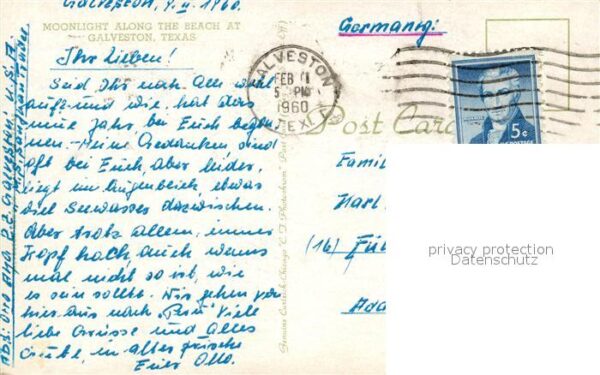 Galveston, 9.II.1960.
MOONLIGHT ALONG THE BEACH AT
GALVESTON, TEXAS
Germany:
Ihr Lieben!
Seid Ihr noch Alle wohl
auf? und wie hat das
neue Jahr, bei Euch begon-
nen. Meine Gedanken sind
oft bei Euch, aber leider,
liegt im Augenblick, etwas
viel Seewasser dazwischen.
Aber trotz allem, immer
Kopf hoch, auch wenns
mal nicht so ist, wie
es sein sollte. Wir gehen von
hier aus nach "Peru". Viele
liebe Grüsse und Alles
Gute, in alter Frische
Euer Otto.
Abs: Otto
Galveston U.S.A.
GALVESTON
FEB
5 PM
1960
TEX.
Post Card
5¢
POSTAGE
Genuine Curteich-Chicago "C.T. Photochrom" Post
Famil
Karl
(16)
privacy protection
Datenschutz